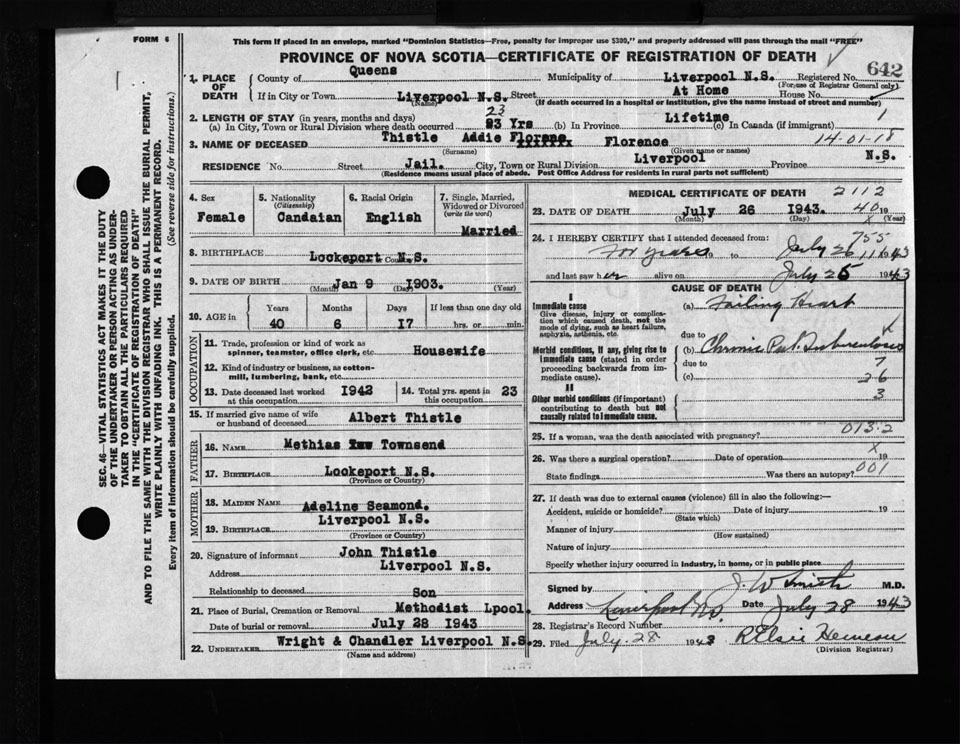 FORM 6
This form if placed in an envelope, marked "Dominion Statistics—Free, penalty for improper use $300," and properly addressed will pass through the mail "FREE"
PROVINCE OF NOVA SCOTIA—CERTIFICATE OF REGISTRATION OF DEATH
642
1. PLACE OF DEATH
County of Queens Municipality of Liverpool N.S. Registered No.
(For use of Registrar General only)
If in City or Town Liverpool N.S. Street At Home House No.
(Name) (If death occurred in a hospital or institution, give the name instead of street and number)
2. LENGTH OF STAY (in years, months and days)
23
(a) In City, Town or Rural Division where death occurred 23 Yrs (b) In Province Lifetime (c) In Canada (if immigrant) 1
3. NAME OF DECEASED Thistle Addie Florence 14-01-18
(Surname) (Given name or names)
RESIDENCE No. Street Jail. City, Town or Rural Division Liverpool Province N.S.
(Residence means usual place of abode. Post Office Address for residents in rural parts not sufficient)
4. Sex Female
5. Nationality (Citizenship) Candaian
6. Racial Origin English
7. Single, Married, Widowed or Divorced (write the word) Married
8. BIRTHPLACE Lockeport N.S.
9. DATE OF BIRTH Jan 9 1903.
(Month) (Day) (Year)
10. AGE in Years Months Days If less than one day old
40 6 17 hrs. or min.
OCCUPATION
11. Trade, profession or kind of work as spinner, teamster, office clerk, etc. Housewife
12. Kind of industry or business, as cotton-mill, lumbering, bank, etc.
13. Date deceased last worked at this occupation 1942
14. Total yrs. spent in this occupation 23
15. If married give name of wife or husband of deceased Albert Thistle
FATHER
16. NAME Methias Townsend
17. BIRTHPLACE Lockeport N.S.
(Province or Country)
MOTHER
18. MAIDEN NAME Adeline Seamond.
19. BIRTHPLACE Liverpool N.S.
(Province or Country)
20. Signature of informant John Thistle
Address Liverpool N.S.
Relationship to deceased Son
21. Place of Burial, Cremation or Removal Methodist Lpool.
Date of burial or removal July 28 1943
22. UNDERTAKER Wright & Chandler Liverpool N.S.
(Name and address)
MEDICAL CERTIFICATE OF DEATH 2112
23. DATE OF DEATH July 26 1943. 40 19
(Month) (Day) x (Year)
755
24. I HEREBY CERTIFY that I attended deceased from:
For years 19 to July 26 1943
and last saw her alive on July 25 1943
CAUSE OF DEATH
I
Immediate cause
Give disease, injury or complication which caused death, not the mode of dying, such as heart failure, asphyxia, asthenia, etc.
(a) Failing Heart
due to x
Morbid conditions, if any, giving rise to immediate cause (stated in order proceeding backwards from immediate cause).
(b) Chronic Pul. Tuberculosis
due to 7
(c) 26
II
Other morbid conditions (if important) contributing to death but not causally related to immediate cause.
3
013.2
25. If a woman, was the death associated with pregnancy?
26. Was there a surgical operation? Date of operation x 19
State findings Was there an autopsy? 001
27. If death was due to external causes (violence) fill in also the following:—
Accident, suicide or homicide? Date of injury 19
(State which)
Manner of injury
(How sustained)
Nature of injury
Specify whether injury occurred in industry, in home, or in public place
Signed by J. W Smith M.D.
Address Liverpool N.S. Date July 28 1943
28. Registrar's Record Number
29. Filed July 28 1943 R Elsie
(Division Registrar)
SEC. 46—VITAL STATISTICS ACT MAKES IT THE DUTY OF THE UNDERTAKER OR PERSON ACTING AS UNDERTAKER TO OBTAIN ALL THE PARTICULARS REQUIRED IN THE "CERTIFICATE OF REGISTRATION OF DEATH" AND TO FILE THE SAME WITH THE DIVISION REGISTRAR WHO SHALL ISSUE THE BURIAL PERMIT,
WRITE PLAINLY WITH UNFADING INK. THIS IS A PERMANENT RECORD.
Every item of information should be carefully supplied. (See reverse side for instructions.)